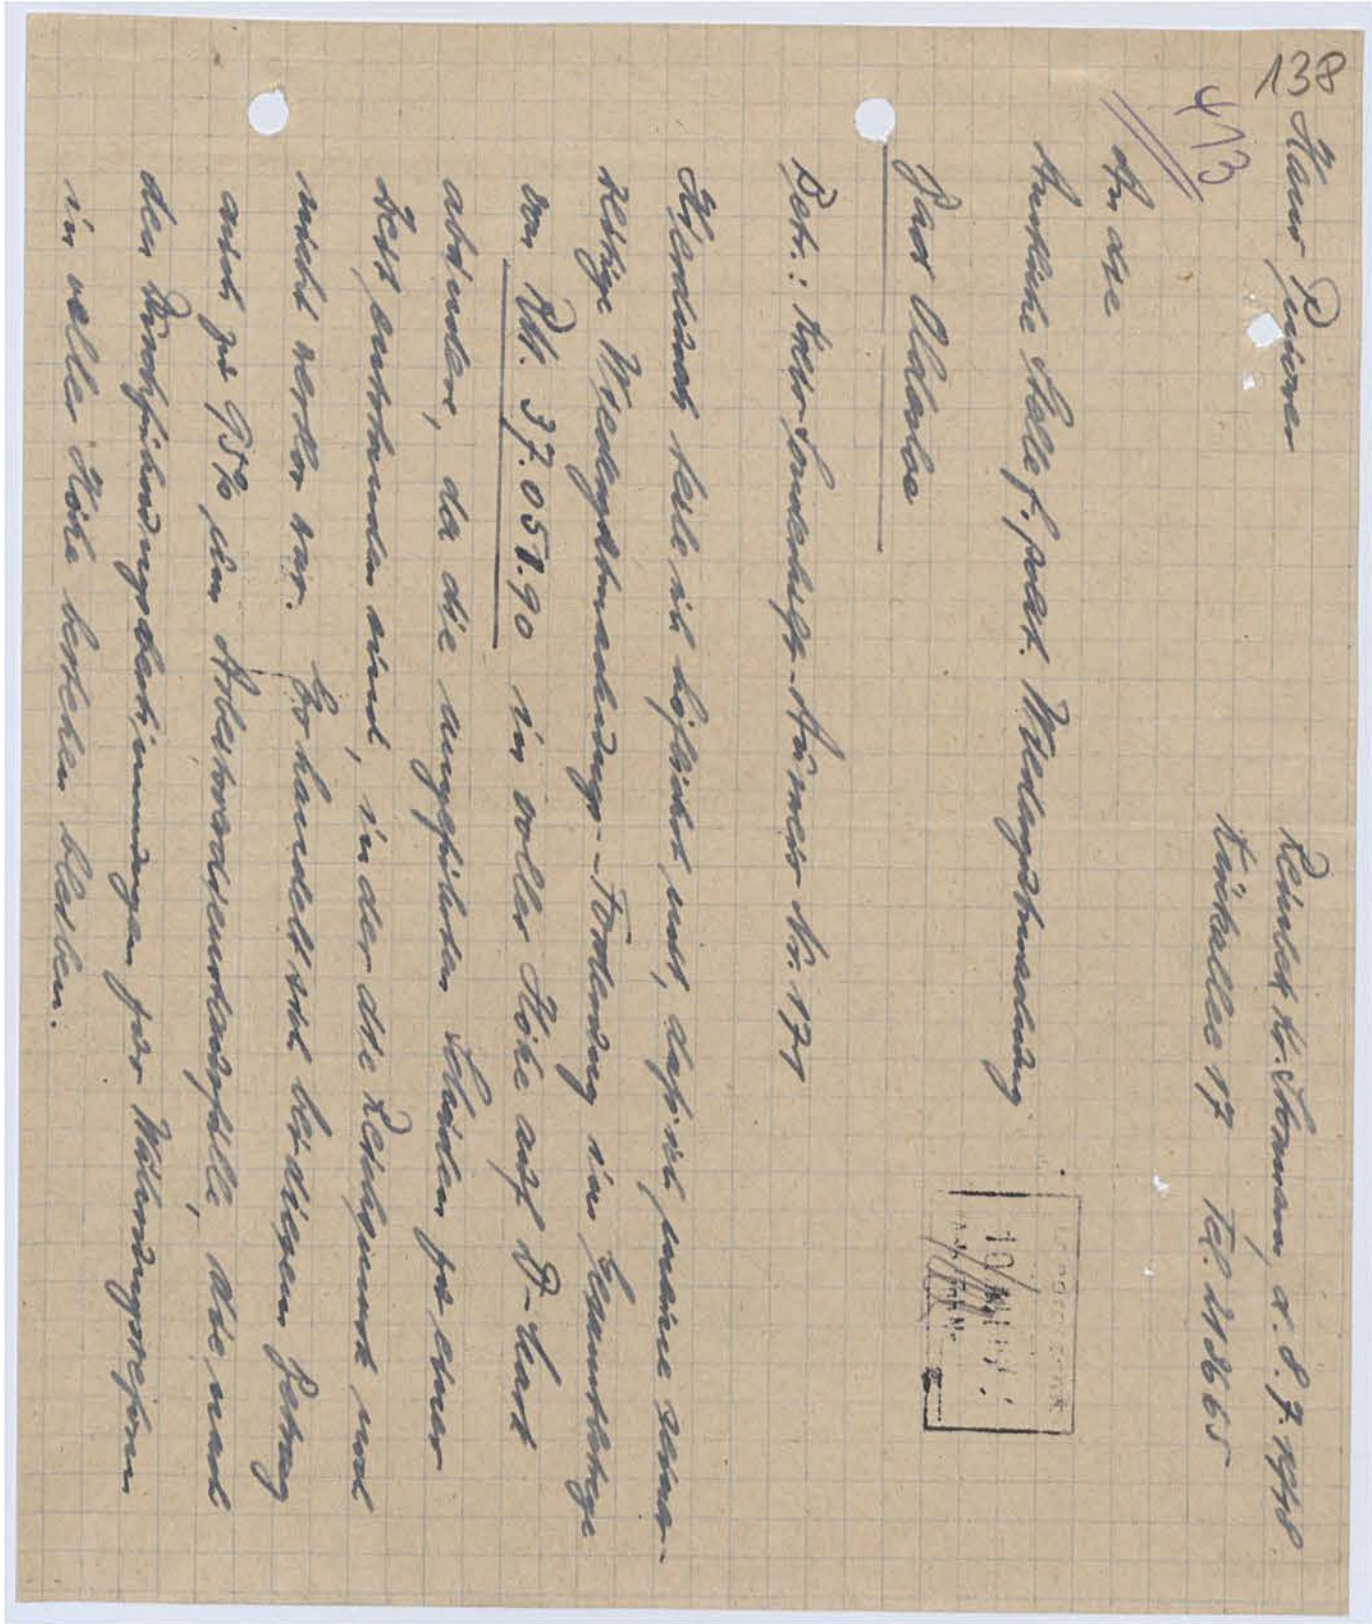 138
Hans
413
Reinbek Kr. Stormarn, d. 8. 7. 1948.
Kückallee 17 Tel. 21 36 65
An die
Amtliche Stelle f. polit. Wiedergutmachung
Bad Oldesloe
Betr.: Kreis-Sonderhilfs-Ausweis Nr. 171
Hierdurch teile ich höflichst mit, daß ich meine seiner-
zeitige Wiedergutmachungs-Forderung im Gesamtbetrage
von RM. 37.051.90 in voller Höhe auf D-Mark
abändere, da die angeführten Schäden zu einer
Zeit entstanden sind, in der die Reichsmark noch
nicht wertlos war. Es handelt sich bei diesem Betrag
auch zu 95% um Arbeitsverdienstausfälle, die nach
den Durchführungsbestimmungen zur Währungsreform
in voller Höhe bestehen bleiben.